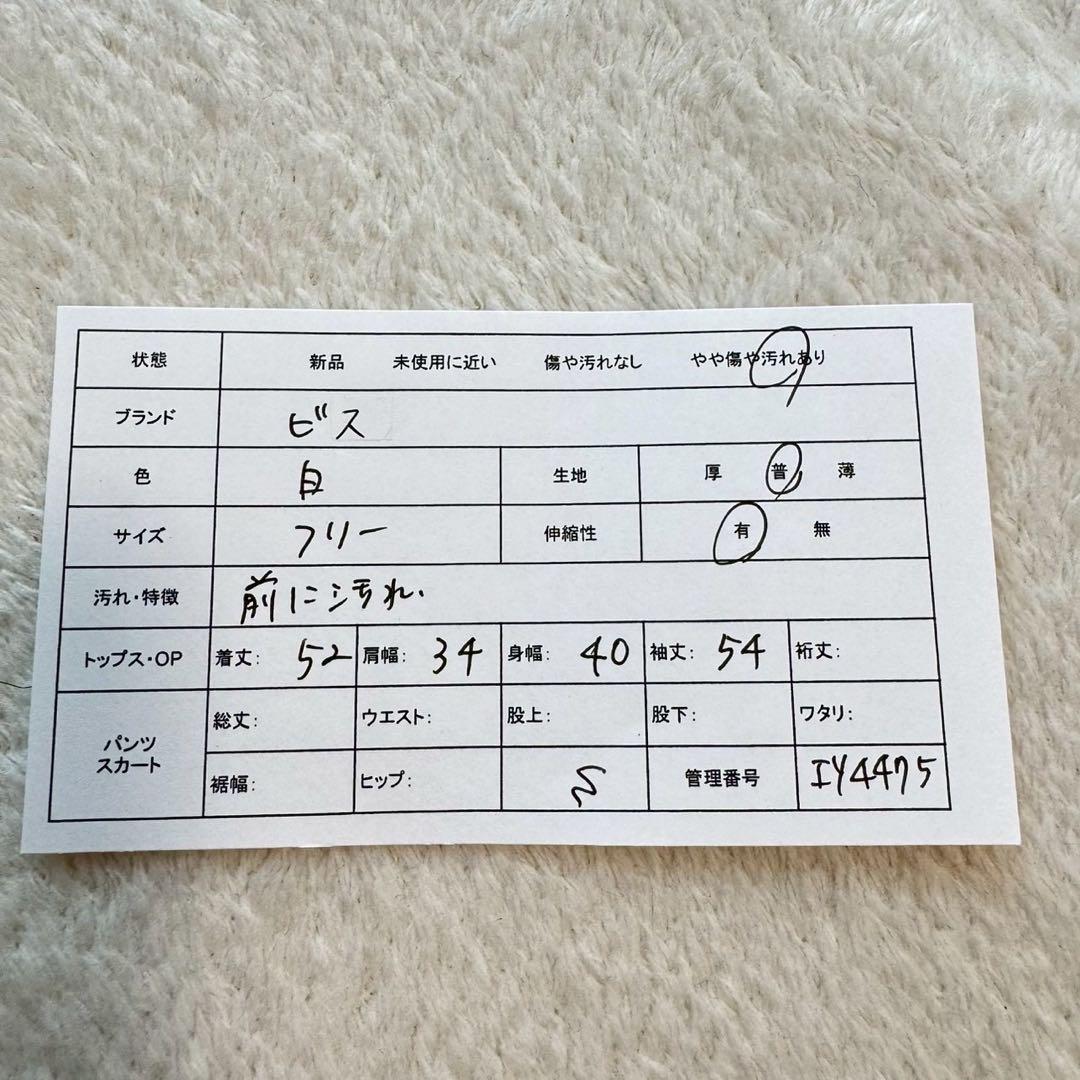 状態 新品 未使用に近い 傷や汚れなし やや傷や汚れあり
ブランド ビス
色 白 生地 厚 普 薄
サイズ フリー 伸縮性 有 無
汚れ・特徴 前に汚れ.
トップス・OP 着丈: 52 肩幅: 34 身幅: 40 袖丈: 54 裄丈:
パンツ スカート 総丈: ウエスト: 股上: 股下: ワタリ:
裾幅: ヒップ: 管理番号 IY4475